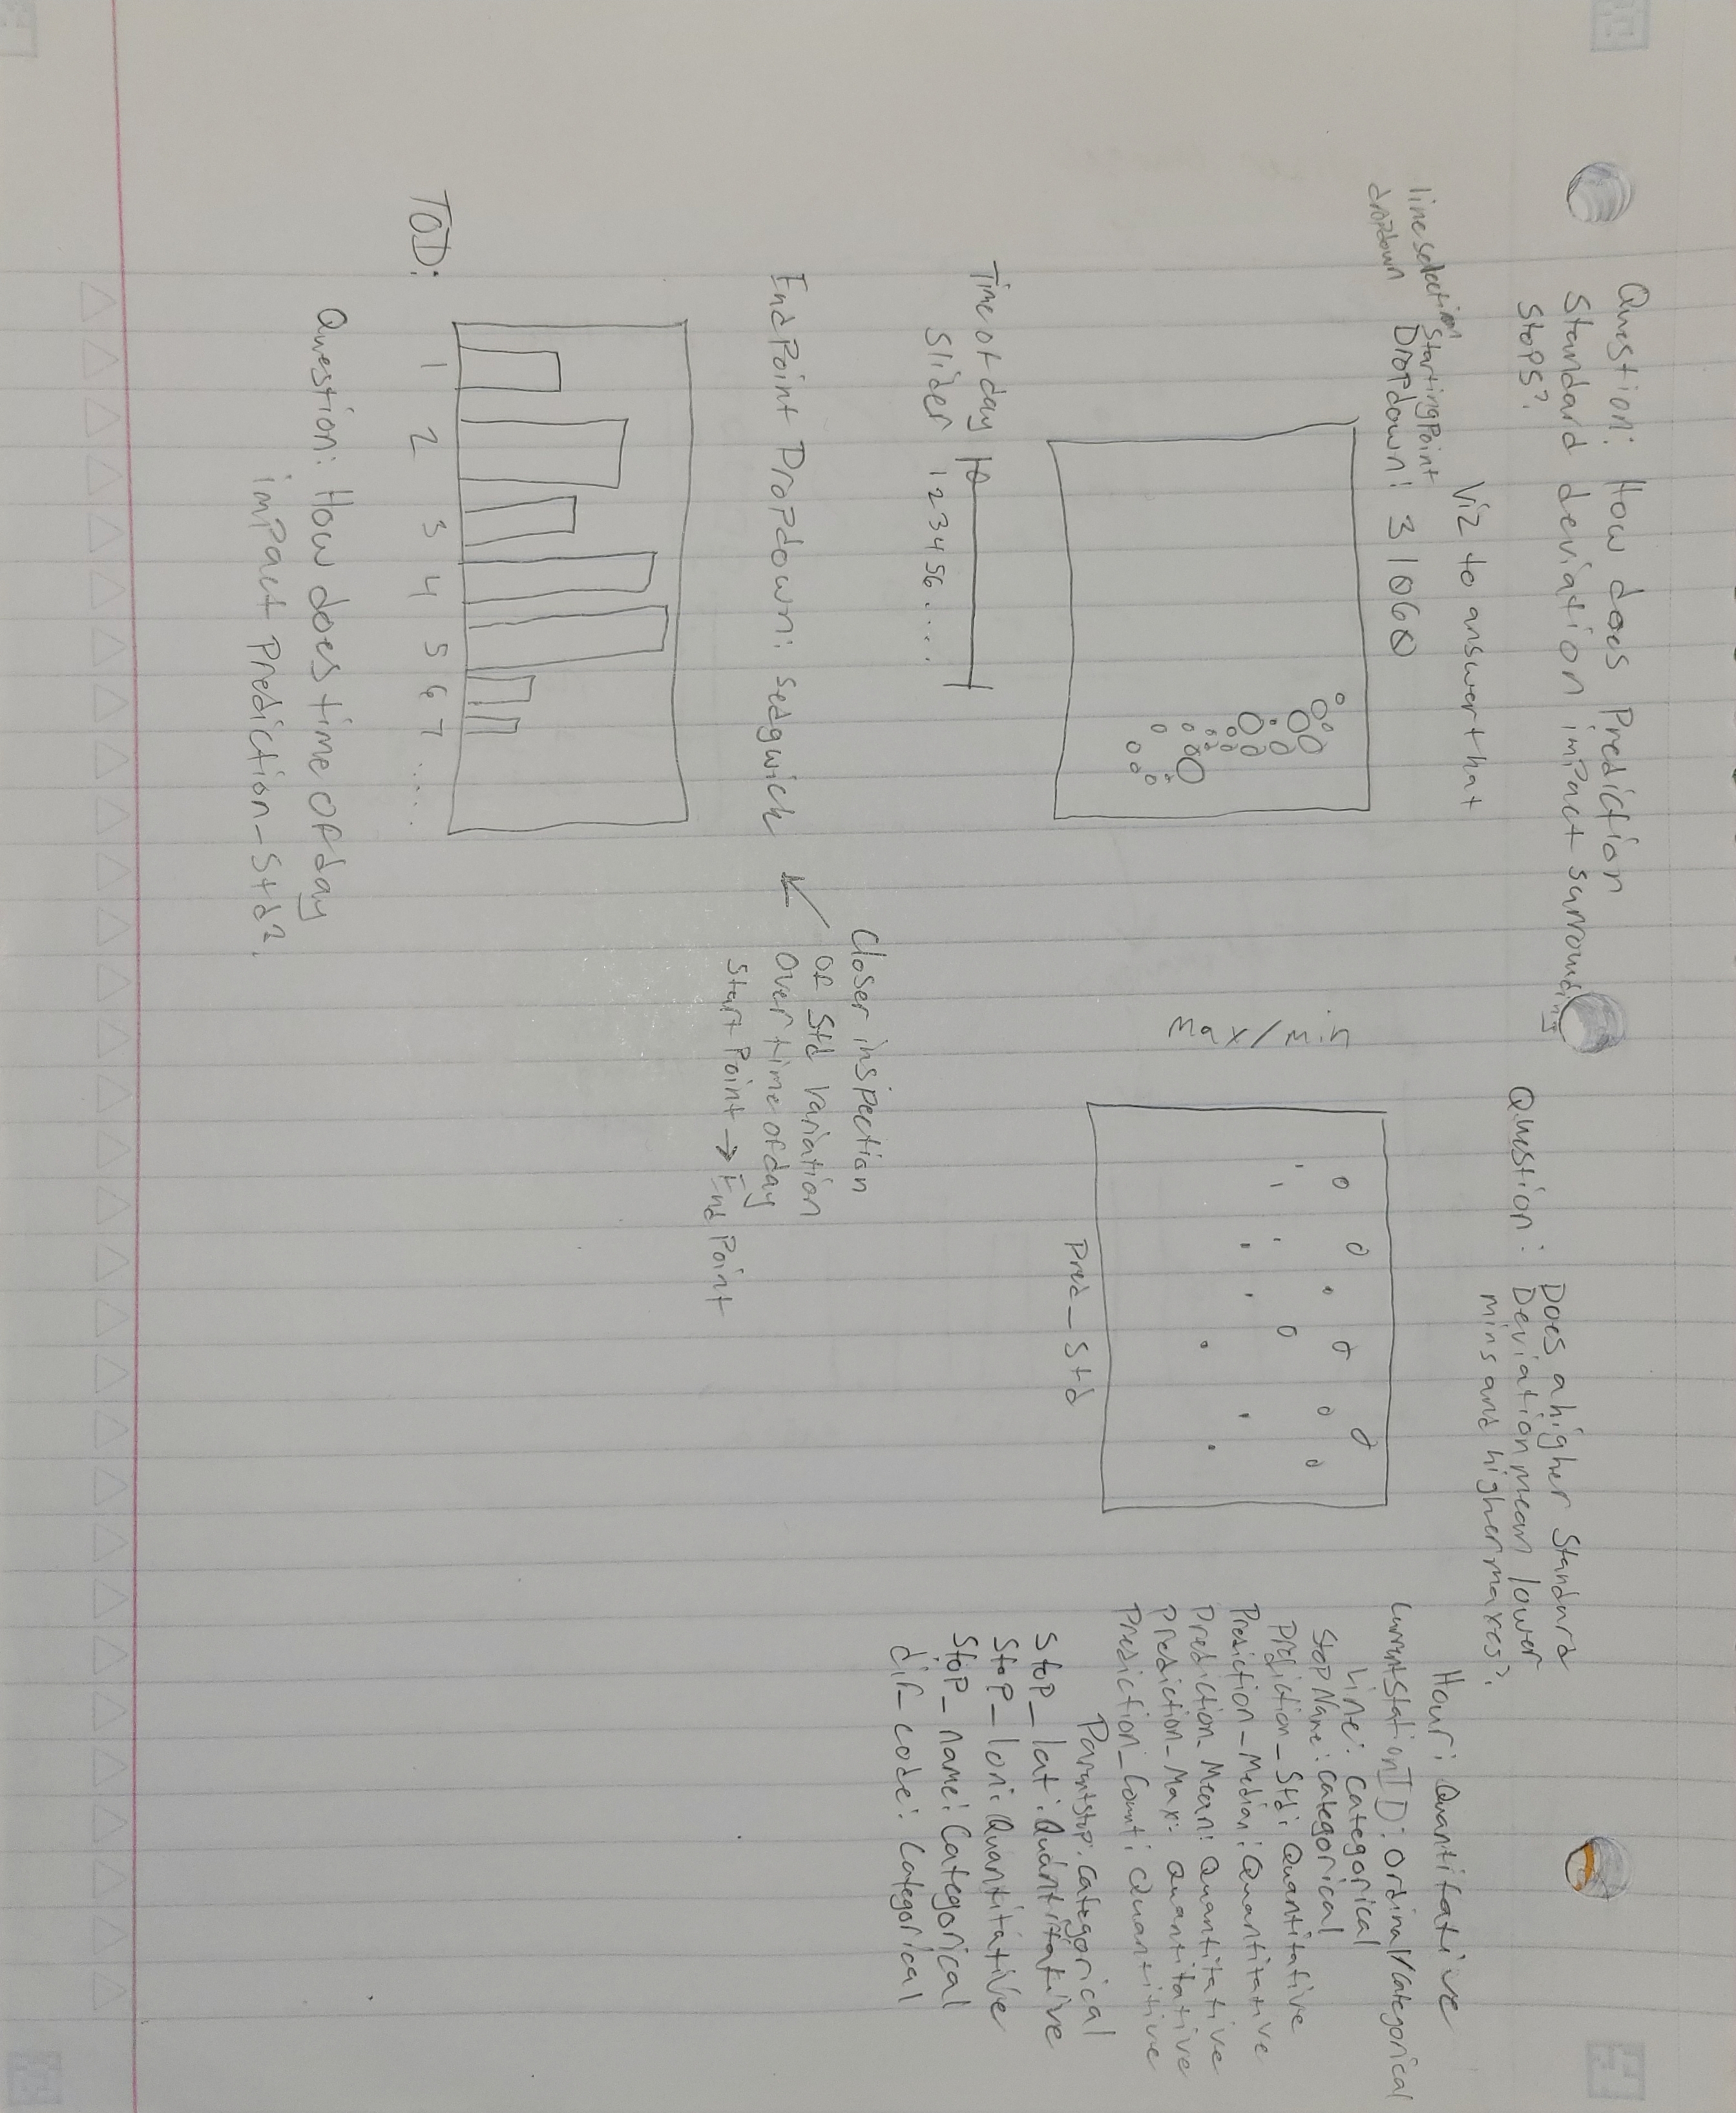 Question: How does Prediction
Standard deviation impact surrounding
stops?
Viz to answer that
line selection
dropdown
Starting Point
Dropdown: 31060
Time of day
Slider 1 2 3 4 5 6 ....
EndPoint Dropdown: sedgwick
Closer inspection
of std variation
over time of day
Start Point → End Point
TOD: 1 2 3 4 5 6 7 ...
Question: How does time of day
impact Prediction_Std?
Question: Does a higher Standard
Deviation mean lower
mins and higher maxes?
Max/Min
Pred_Std
Hour: Quantitative
CurrentStationID: Ordinal/Categorical
Line: Categorical
StopName: categorical
Prediction_Std: Quantitative
Prediction_Median: Quantitative
Prediction_Mean: Quantitative
Prediction_Max: Quantitative
Prediction_Count: Quantitive
Parentstop: Categorical
Stop_lat: Quantitative
Stop_lon: Quantitative
Stop_name: Categorical
dir_code: Categorical